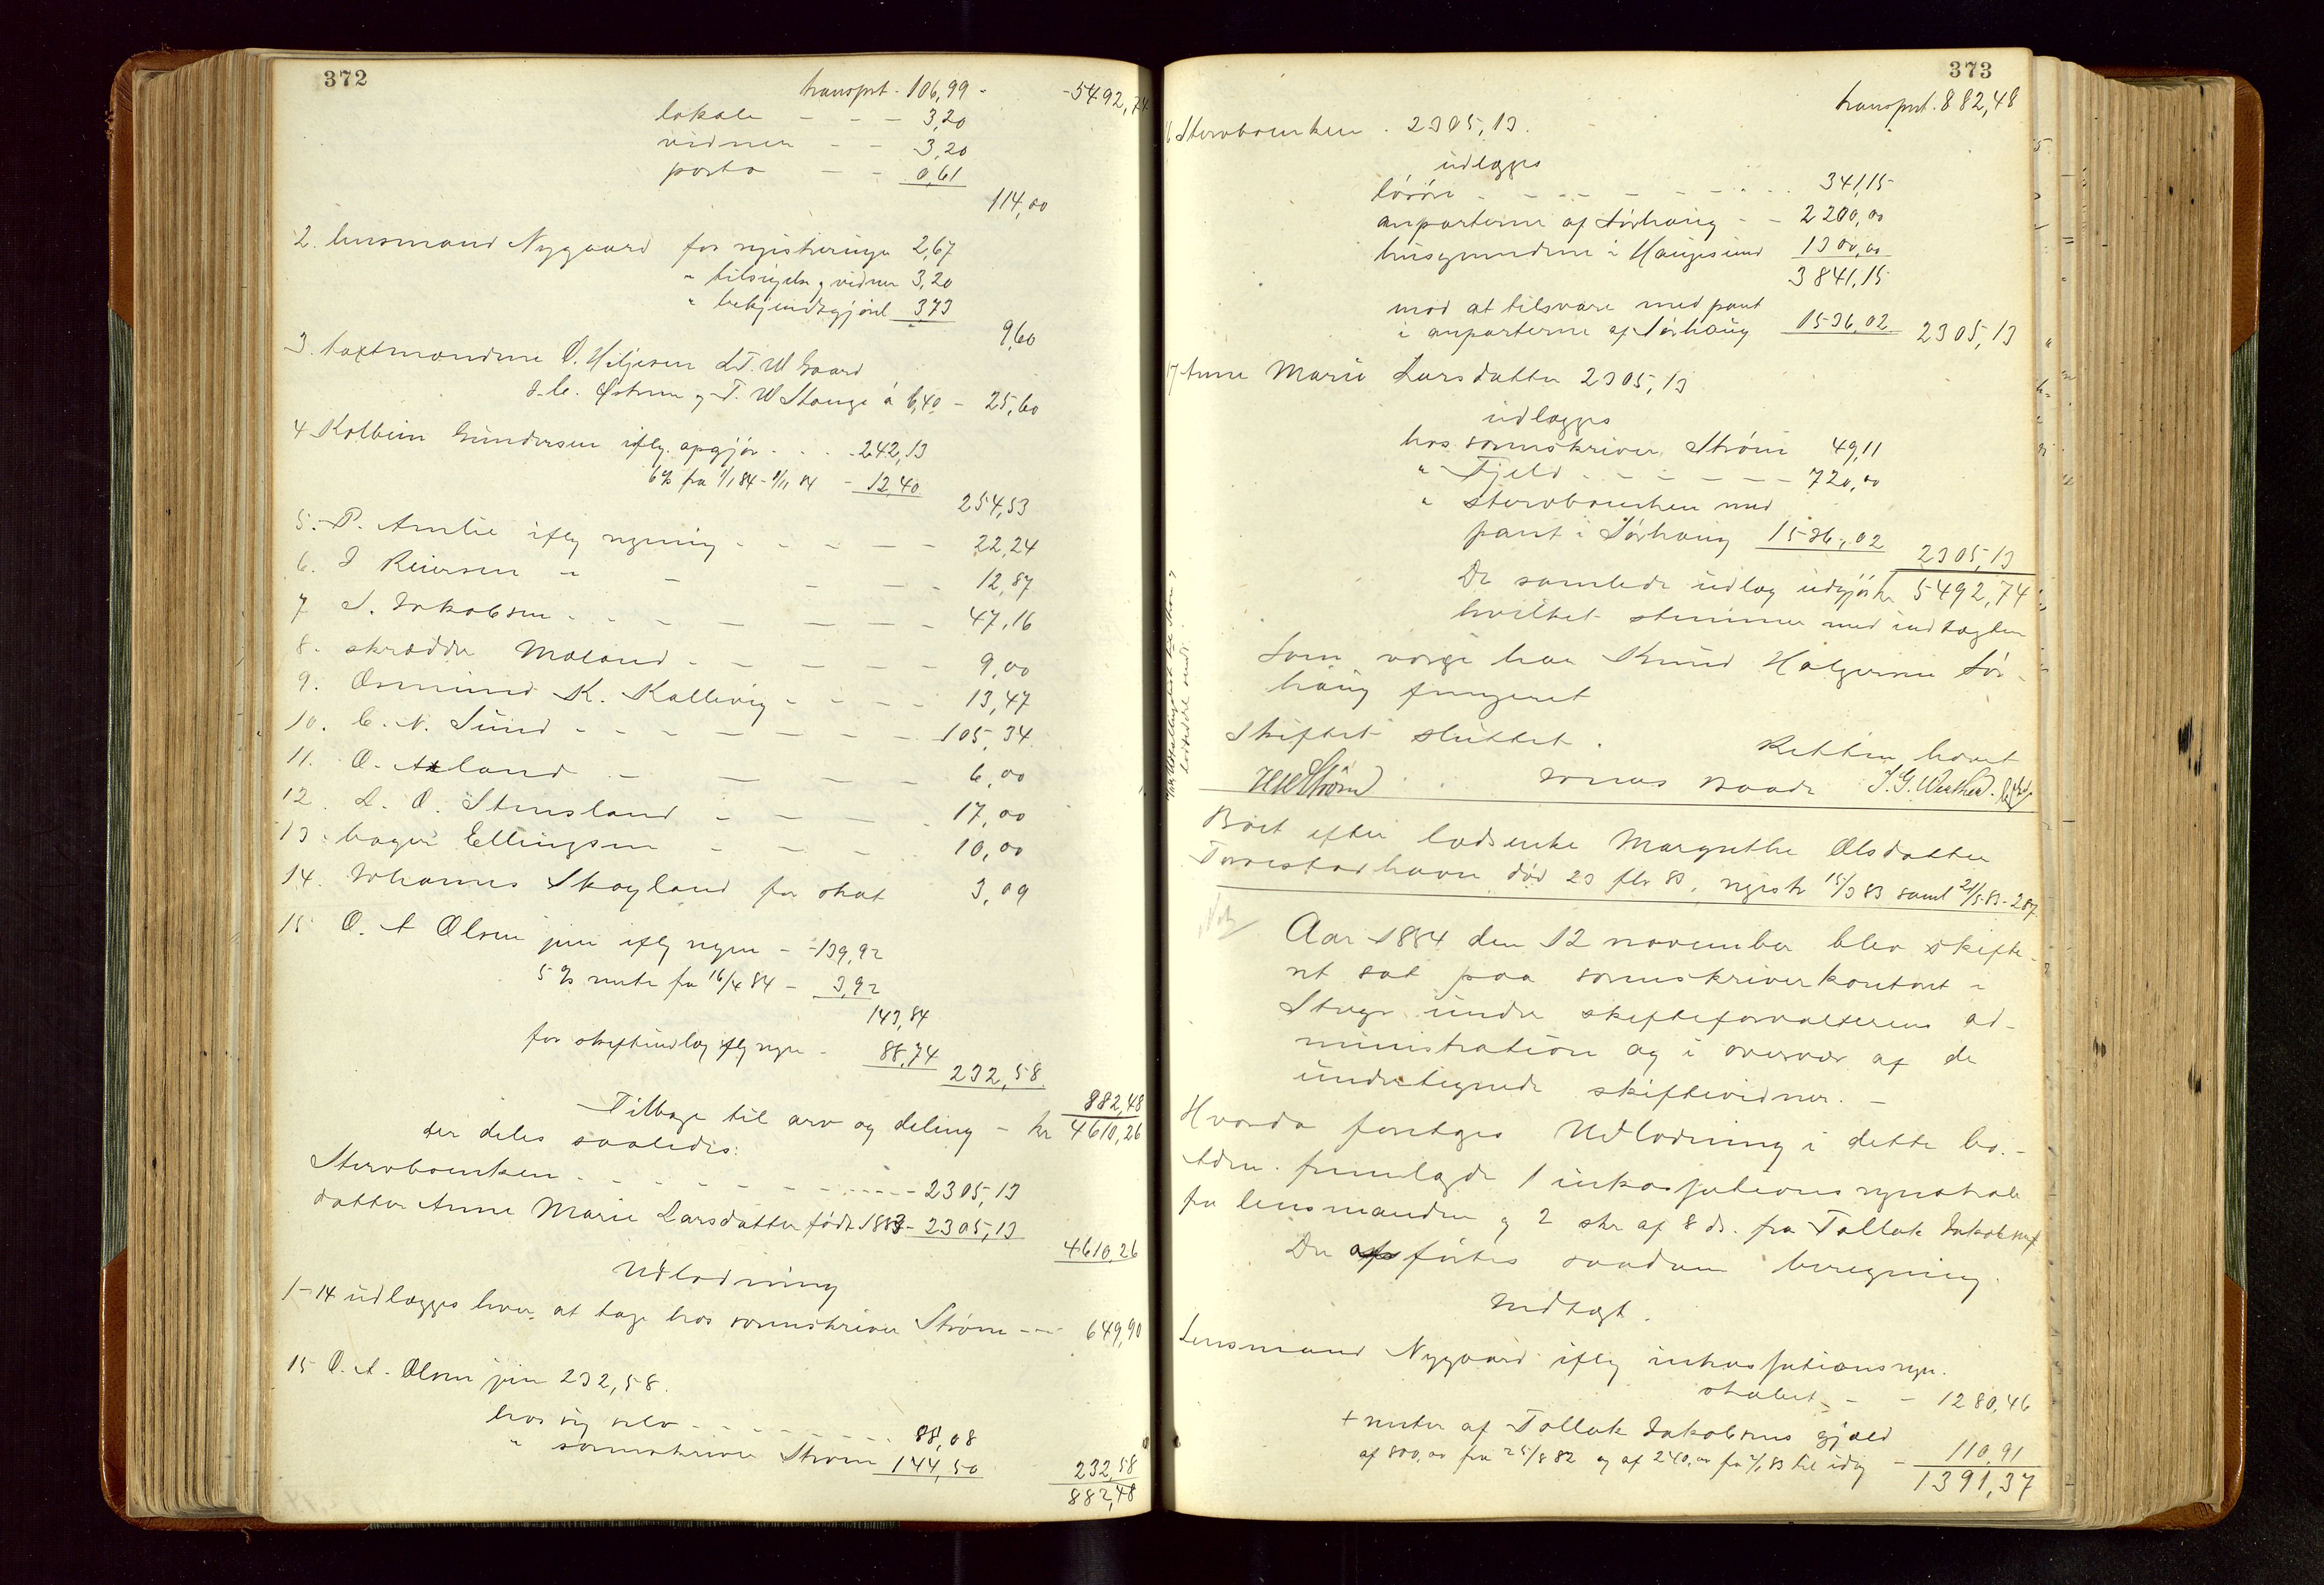 372
transprt. 106,99 - - 5492,74
lokale - - - 3,20
vidner - - 3,20
porto - - 0,61
114,00
2. lensmand Nygaard for registreringen 2,67
" tilsigelse og vidner 3,20
" bekjendtgjørel 3,73
9,60
3. taxtmændene O. Hiljesen
Østrem og T. W Stange á 6,40 - 25,60
4 Kolbein Gundersen iflg. opgjør - - - 242,13
6% fra 1/1 84 - 9/11 84 - 12,40
254,53
5. P. Amlie iflg regning - - - - - 22,24
6. J Reiersen " - - - 12,87
7 J. Jakobsen - - - - - - 47,16
8. skrædder Mæland - - - - - 9,00
9. Osmund K. Kallevig - - - - 13,47
10. C. N. Sund - - - - - - - 105,34
11. O. Axland - - - - 6,00
12. L. O. Stensland - - - - 17,00
13. bager Ellingsen - - - 10,00
14. Johannes Skogland for skat 3,09
15 O. A Olsen jun iflg regn - - 139,92
5% rente fra 16/4 84 - 3,92
143,84
for skifteudlæg iflg regn - 88,74
232,58
882,48
Tilbage til arv og deling - kr 4610,26
der deles saaledes:
Stervboenken - - - - - - - 2305,13
datter Anne Marie Larsdatter født 1883 - 2305,13
4610,26
Udlodning
1-14 udlægges hver, at tage hos sorenskriver Strøm - - 649,90
15 O. A. Olsen jun 232,58.
hos sig selv - - - - - - - 88,08
" sorenskriver Strøm 144,50
232,58
882,48
373
transprt. 882,48
16 Stervboenken . 2305,13.
udlægges
løsøre - - - - - - - 341,15
anparterne af Sørhaug - - 2200,00
husgrunden i Haugesund 1300,00
3841,15
mod at tilsvare med pant
i anparterne af Sørhaug 1536,02 2305,13
17 Anne Marie Larsdatter 2305,13
udlægges
hos sorenskriver Strøm 49,11
" Fjeld - - - - - - 720,00
" stervboenken med
pant i Sørhaug 1536,02 2305,13
De samlede udlæg udgjør kr 5492,74
hvilket stemmer med indtægten
Som værge har Knud Halgersen Sør-
haug fungeret
Skiftet sluttet. Retten hævet
Strøm Jonas Baade
Boet efter lodsenke Margrethe Olsdatter
Torvestadhavn død 23 febr 83, registr 15/3 83 samt 21/5 83 - 287
Aar 1884 den 12 november blev skifte-
ret sat paa sorenskriverkontoret i
Stuge under skifteforvalterens ad-
ministration og i overvær af de
undertegnede skiftevidner. -
Hvorda foretoges Udlodning i dette bo. -
Adm. fremlagde 1 inkassationsregnskab
fra lensmanden og 2 skr af 8 ds. fra Tollak Jakobsen
Der førtes saadan beregning.
Indtægt.
Lensmand Nygaard iflg inkassationsregn-
skabet - - 1280,46
+ renter af Tollak Jakobsens gjæld
af 800,00 fra 25/8 82 og af 240,00 fra 2/1 83 til idag - 110,91
1391,37